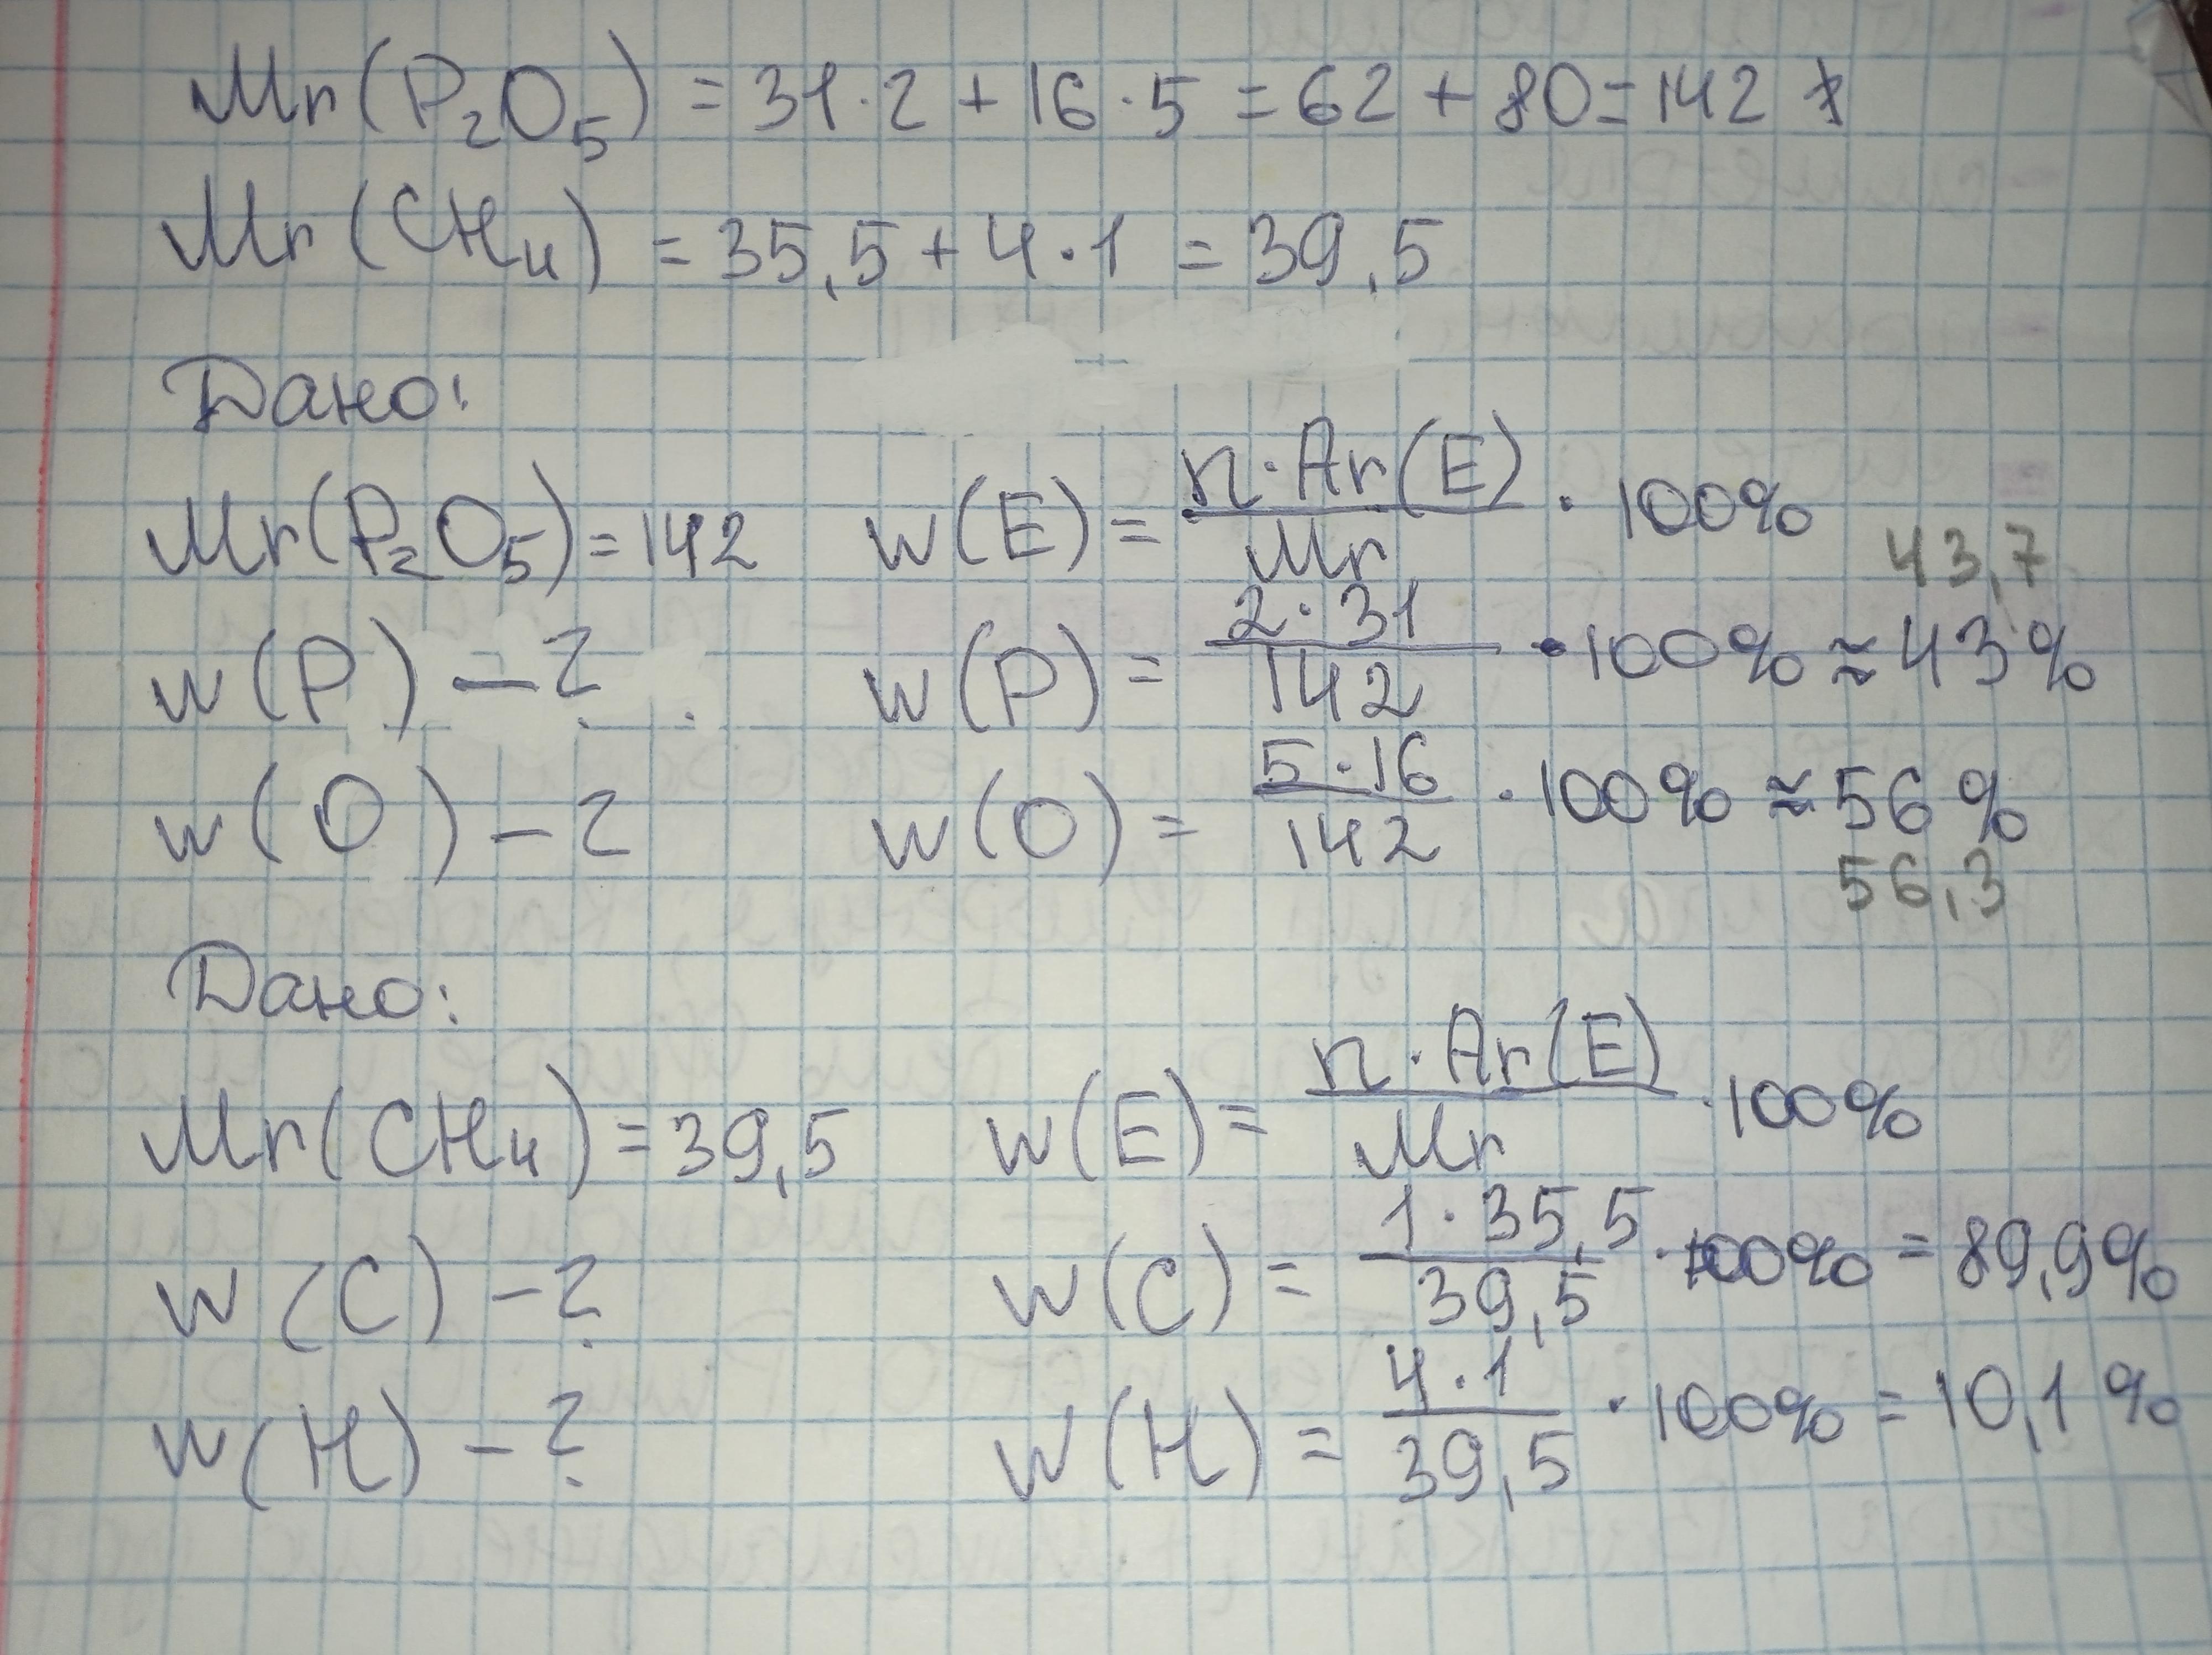 Mr(P₂O₅) = 31·2 + 16·5 = 62 + 80 = 142
Mr(CH₄) = 35,5 + 4·1 = 39,5
Дано:
Mr(P₂O₅) = 142 w(E) = n·Ar(E)/Mr · 100%
43,7
w(P) – ? w(P) = 2·31/142 · 100% ≈ 43%
w(O) – ? w(O) = 5·16/142 · 100% ≈ 56%
56,3
Дано:
Mr(CH₄) = 39,5 w(E) = n·Ar(E)/Mr · 100%
w(C) – ? w(C) = 1·35,5/39,5 · 100% = 89,9%
w(H) – ? w(H) = 4·1/39,5 · 100% = 10,1%